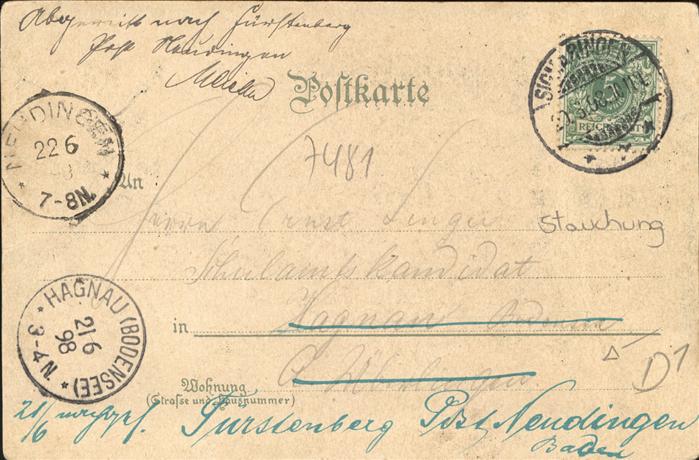 Abgereist nach Fürstenberg
Post Neudingen
Postkarte
SIGMARINGEN
REICHSPOST
NEUDINGEN
22 6
98
7-8N.
7481
An
Herrn Ernst Singer
Stauchung
Schulamtskandidat
HAGNAU (BODENSEE)
21 6
98
3-4 N
in Hagnau Bodensee
Überlingen
D1
Wohnung
(Straße und Hausnummer)
21/6 Fürstenberg Post Neudingen
Baden